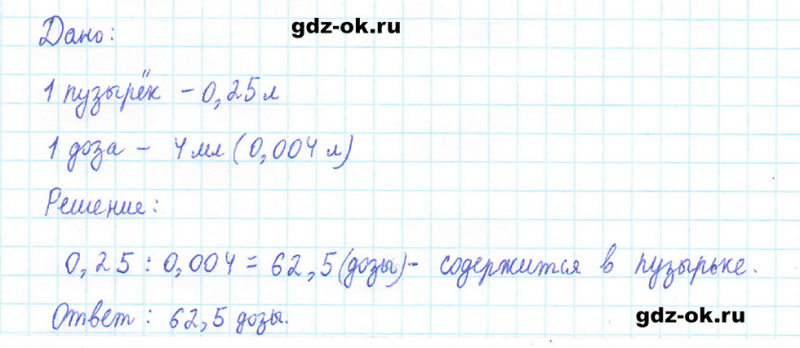 Дано:
gdz-ok.ru
1 пузырёк - 0,25 л
1 доза - 4 мл (0,004 л)
Решение:
0,25 : 0,004 = 62,5 (дозы) - содержится в пузырьке.
Ответ : 62,5 дозы.
gdz-ok.ru